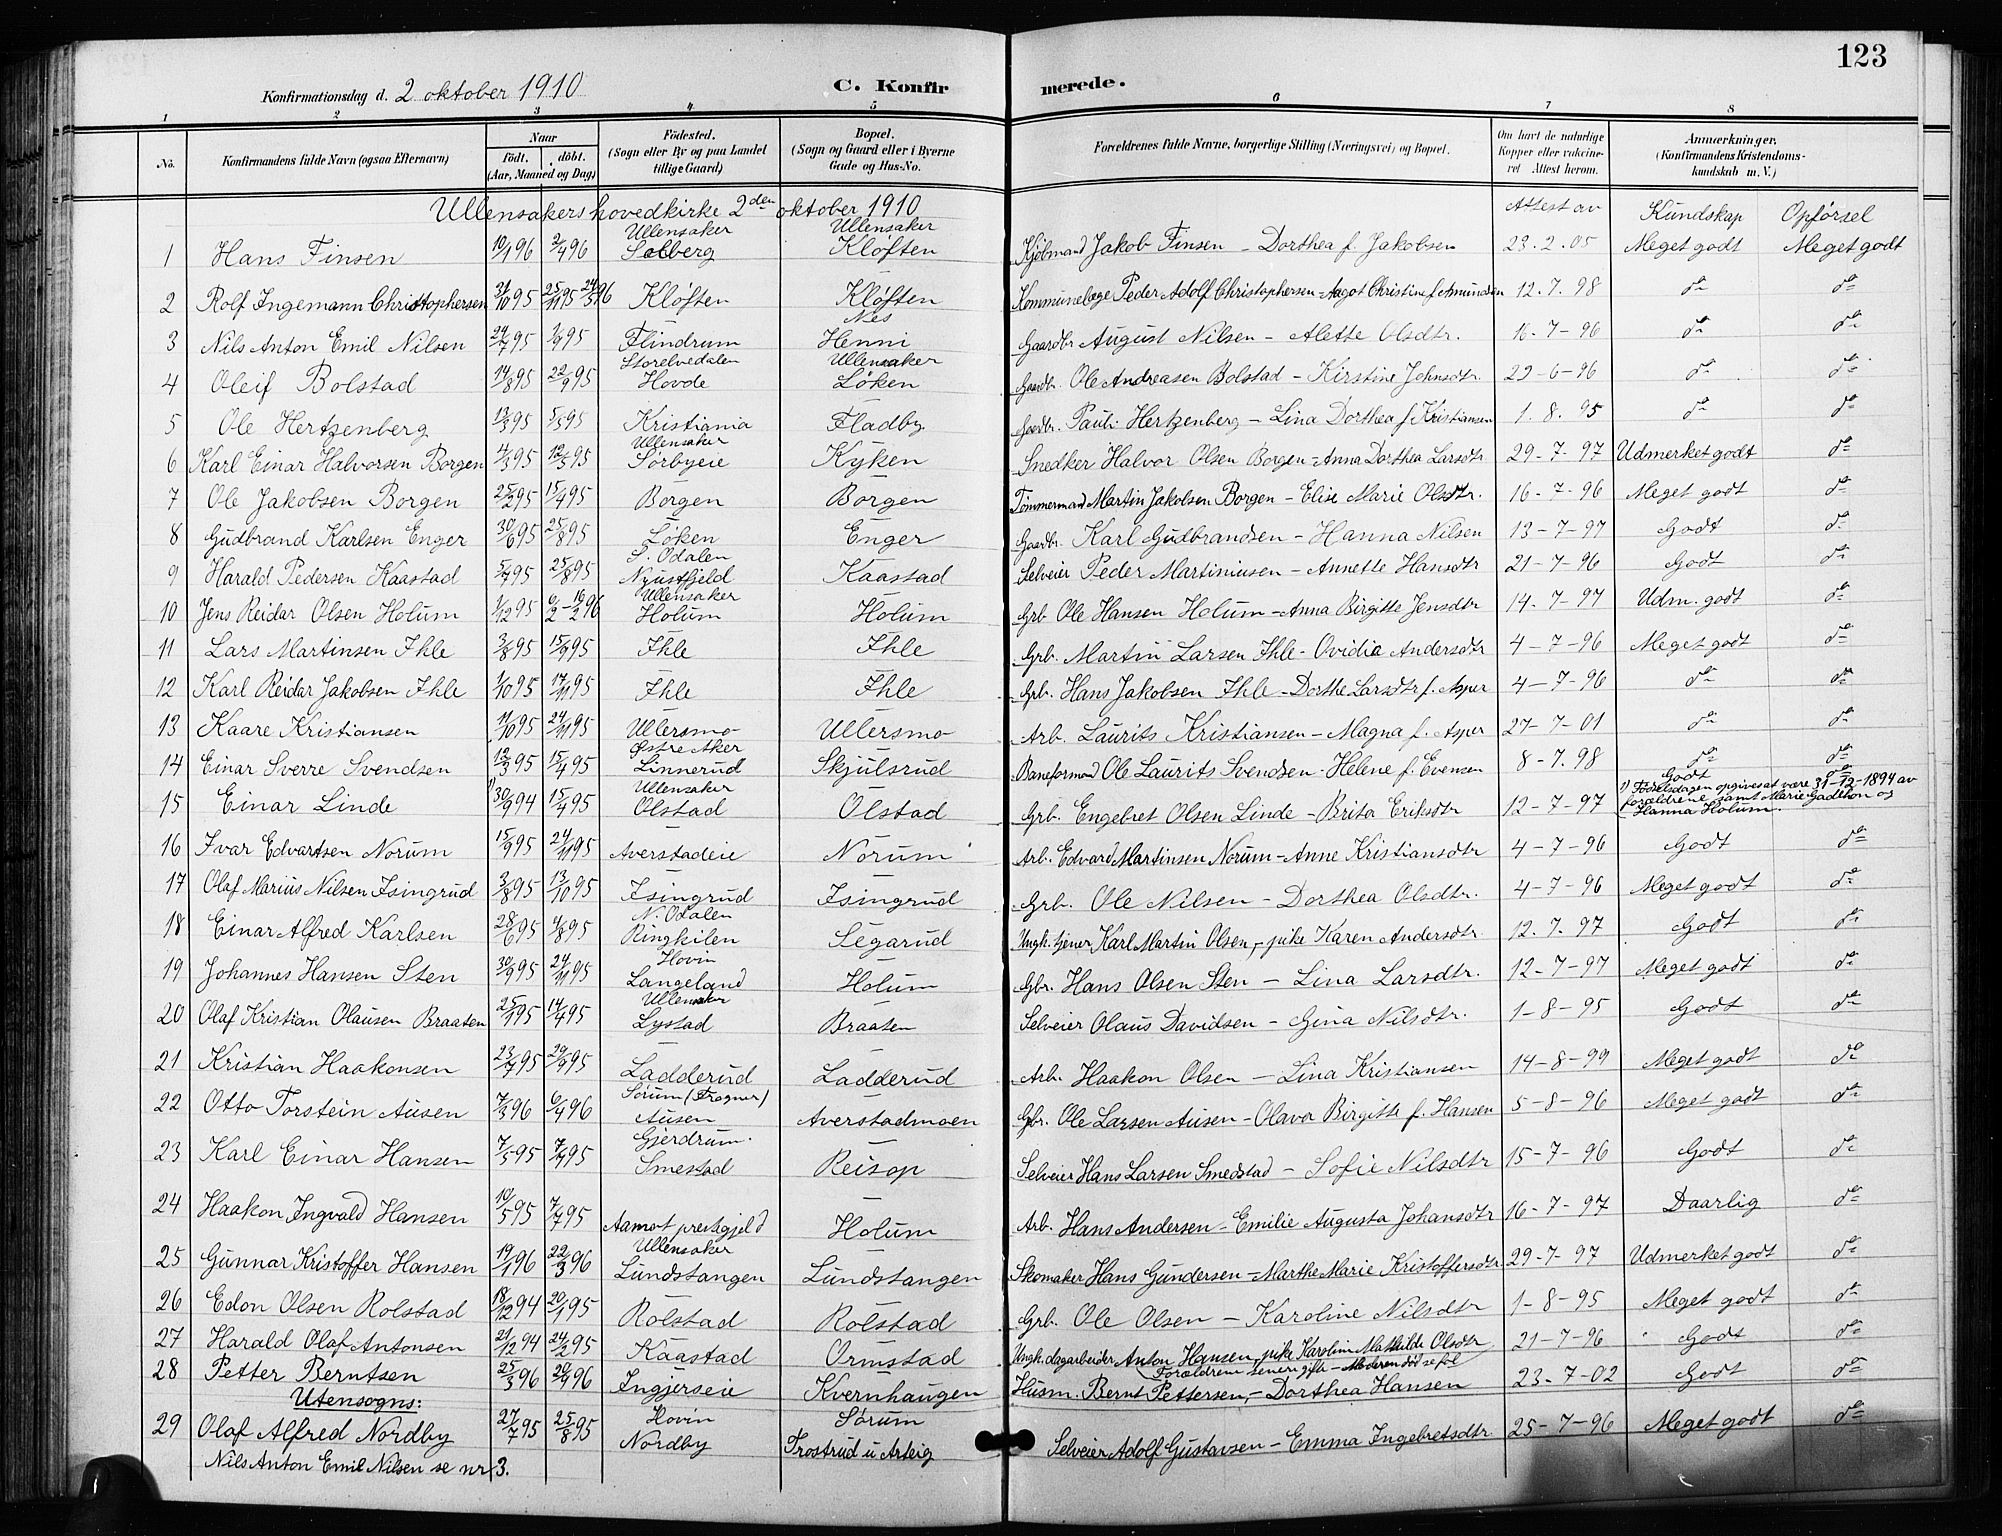 123
Konfirmationsdag d. 2 oktober 1910 C. Konfirmerede.
1 2 3 4 5 6 7 8
No. Konfirmandens fulde Navn (ogsaa Efternavn) Naar födt. döbt. (Aar, Maaned og Dag) Födested. (Sogn eller By og paa Landet tillige Gaard) Bopæl. (Sogn og Gaard eller i Byerne Gade og Hus-No. Forældrenes fulde Navne, borgerlige Stilling (Næringsvei) og Bopæl. Om havt de naturlige Kopper eller vakcineret Attest herom. Anmerkninger. (Konfirmandens Kristendomskundskab m. V.)
Ullensakers hovedkirke 2den oktober 1910 Attest av Kundskap Opførsel
1 Hans Finsen 10/1 96 2/4 96 Ullensaker Solberg Ullensaker Kløften Kjøbmand Jakob Finsen – Dorthea f. Jakobsen 23.2.05 Meget godt Meget godt
2 Rolf Ingemann Christophersen 31/10 95 25/11 95 24/5 96 Kløften Kløften Kommunelæge Peder Adolf Christophersen – Aagot Christine f. Amundsen 12.7.98 do do
3 Nils Anton Emil Nilsen 24/7 95 1/9 95 Flindrum Nes Henni Gaardbr. August Nilsen – Alette Olsdtr. 16-7-96 do do
4 Oleif Bolstad 14/8 95 22/9 95 Storelvedalen Hovde Ullensaker Løken Gaardbr. Ole Andreasen Bolstad – Kirstine Johnsdtr. 22-6-96 do do
5 Ole Hertzenberg 13/3 95 5/5 95 Kristiania Fladby Gaardbr. Pauli Hertzenberg – Lina Dorthea f. Kristiansen 1.8.95 do do
6 Karl Einar Halvorsen Borgen 4/3 95 12/5 95 Ullensaker Sørbyeie Kyken Snedker Halvor Olsen Borgen – Anna Dorthea Larsdtr 29-7-97 Udmerket godt do
7 Ole Jakobsen Borgen 25/2 95 15/4 95 Borgen Borgen Tømmermand Martin Jakobsen Borgen – Elise Marie Olsdtr. 16-7-96 Meget godt do
8 Gudbrand Karlsen Enger 30/6 95 25/8 95 Løken Enger Gaardbr. Karl Gudbrandsen – Hanna Nilsen 13-7-97 Godt do
9 Harald Pedersen Kaastad 5/7 95 25/8 95 S. Odalen Kaastad Selveier Peder Martiniusen – Annette Hansdtr 21-7-96 Godt do
10 Jens Reidar Olsen Holum 1/12 95 9/2 – 16/2 96 Ullensaker Holum Holum Grb. Ole Hansen Holum – Anna Birgitte Jensdtr 14.7-97 Udm. godt do
11 Lars Martinsen Ihle 3/8 95 15/9 95 Ihle Ihle Grb. Martin Larsen Ihle – Ovidia Andersdtr 4-7-96 Meget godt do
12 Karl Reidar Jakobsen Ihle 1/10 95 17/11 95 Ihle Ihle Grb. Hans Jakobsen Ihle – Dorthe Larsdtr f. Asper 4-7-96 do do
13 Kaare Kristiansen 11/10 95 24/11 95 Ullersmo Ullersmo Arb. Laurits Kristiansen – Magna f. Asper 27-7-01 do do
14 Einar Sverre Svendsen 12/3 95 15/4 95 Østre Aker Linnerud Skjulsrud Baneformand Ole Laurits Svendsen – Helene f. Evensen 8-7.98 do do
15 Einar Linde 1) 30/9 94 15/4 95 Ullensaker Olstad Olstad Grb. Engebret Olsen Linde – Brita Eriksdtr 12-7-97 Godt do
1) Fødselsdagen opgives at være 31-12-1894 av forældrene samt Marie Gadthon og Hanna Holum.
16 Ivar Edvartsen Norum 15/9 95 24/11 95 Averstadeie Norum Arb. Edvard Martinsen Norum – Anne Kristiansdtr 4-7-96 Godt do
17 Olaf Marius Nilsen Isingrud 3/8 95 13/10 95 Isingrud Isingrud Grb. Ole Nilsen – Dorthea Olsdtr. 4-7-96 Meget godt do
18 Einar Alfred Karlsen 28/6 95 4/8 95 N. Odalen Ringkilen Segarud Ungk. tjener Karl Martin Olsen, pike Karen Andersdtr. 12.7.97 Godt do
19 Johannes Hansen Sten 30/9 95 24/11 95 Hovin Langeland Holum Gbr. Hans Olsen Sten – Lina Larsdtr. 12-7-97 Meget godt do
20 Olaf Kristian Olausen Braaten 25/1 95 14/4 95 Ullensaker Lystad Braaten Selveier Olaus Davidsen – Gina Nilsdtr. 1-8-95 Godt do
21 Kristian Haakonsen 23/7 95 29/9 95 Ladderud Ladderud Arb. Haakon Olsen – Lina Kristiansen 14-8-99 Meget godt do
22 Otto Torstein Ausen 7/3 96 6/4 96 Sørum (Frogner) Ausen Averstadmoen Gbr. Ole Larsen Ausen – Olava Birgitte f. Hansen 5-8-96 Meget godt do
23 Karl Einar Hansen 7/5 95 7/7 95 Gjerdrum. Smestad Reisop Selveier Hans Larsen Smedstad – Sofie Nilsdtr 15-7-96 Godt do
24 Haakon Ingvald Hansen 10/5 95 7/7 95 Aamot prestegjeld Holum Arb. Hans Andersen – Emilie Augusta Johansdtr 16-7-97 Daarlig do
25 Gunnar Kristoffer Hansen 19/1 96 22/3 96 Ullensaker Lundstangen Lundstangen Skomaker Hans Gundersen – Marthe Marie Kristoffersdtr. 29-7-97 Udmerket godt do
26 Edon Olsen Rolstad 18/12 94 20/1 95 Rolstad Rolstad Grb. Ole Olsen – Karoline Nilsdtr 1-8-95 Meget godt do
27 Harald Olaf Antonsen 21/12 94 24/2 95 Kaastad Ormstad Ungk. dagarbeider Anton Hansen, pike Karolin Mathilde Olsdtr 21-7-96 Godt do
Forældrene senere gifte –
28 Petter Berntsen 25/3 96 20/4 96 Ingjerseie Kvernhaugen Husm. Bernt Pettersen, – Dorthea Hansen 23-7-02 Godt do
Utensogns:
29 Olaf Alfred Nordby 27/7 95 25/8 95 Hovin Nordby Sørum Frostrud u Arteig Selveier Adolf Gustavsen – Emma Ingebretsdtr 25-7-96 Meget godt do
Nils Anton Emil Nilsen se nr 3.